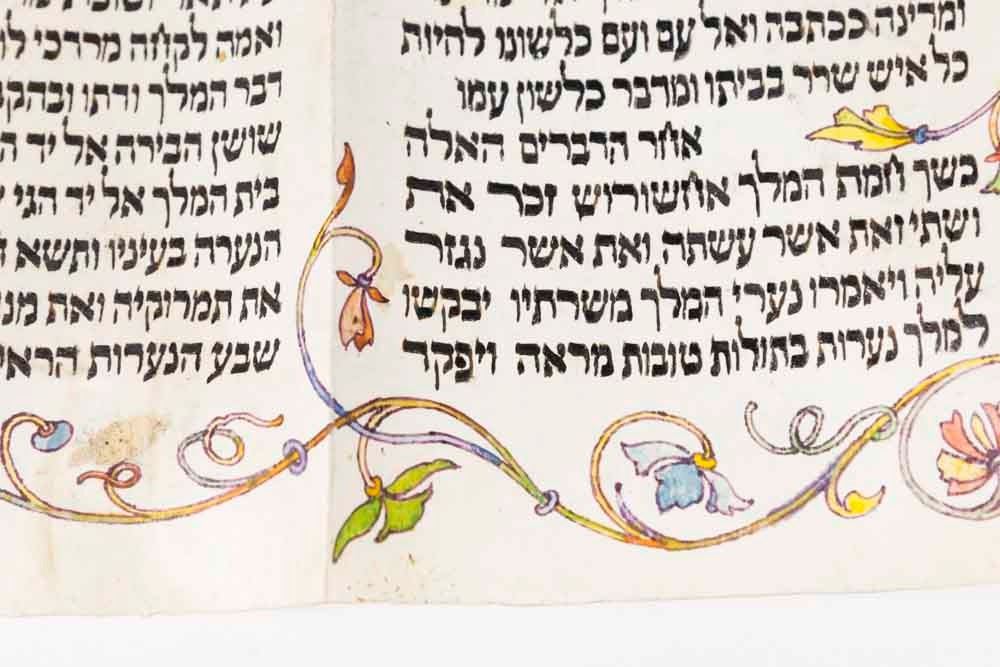 ומדינה ככתבה ואל עם ועם כלשונו להיות
כל איש שרר בביתו ומדבר כלשון עמו
אחר הדברים האלה
כשך חמת המלך אחשורוש זכר את
ושתי ואת אשר עשתה ואת אשר נגזר
עליה ויאמרו נערי המלך משרתיו יבקשו
למלך נערות בתולות טובות מראה ויפקד
ואמה לקחה מרדכי לו
דבר המלך ודתו ובהקב
שושן הבירה אל יד ה
בית המלך אל יד הגי
הנערה בעיניו ותשא
את תמרוקיה ואת מנ
שבע הנערות הראי